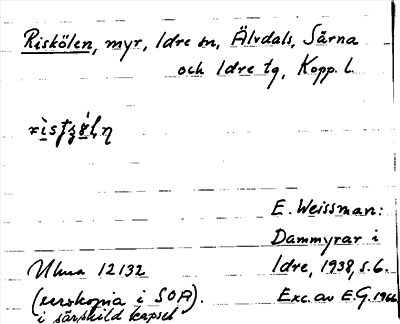 Riskölen, myr, Idre sn, Älvdals, Särna
och Idre tg, Kopp. l.
E. Weissman:
Dammyrar i
Uhna 12132
Idre, 1938, s. 6.
(xerokopia i SOA).
Exc. av E.G. 1966
i särskild kapsel